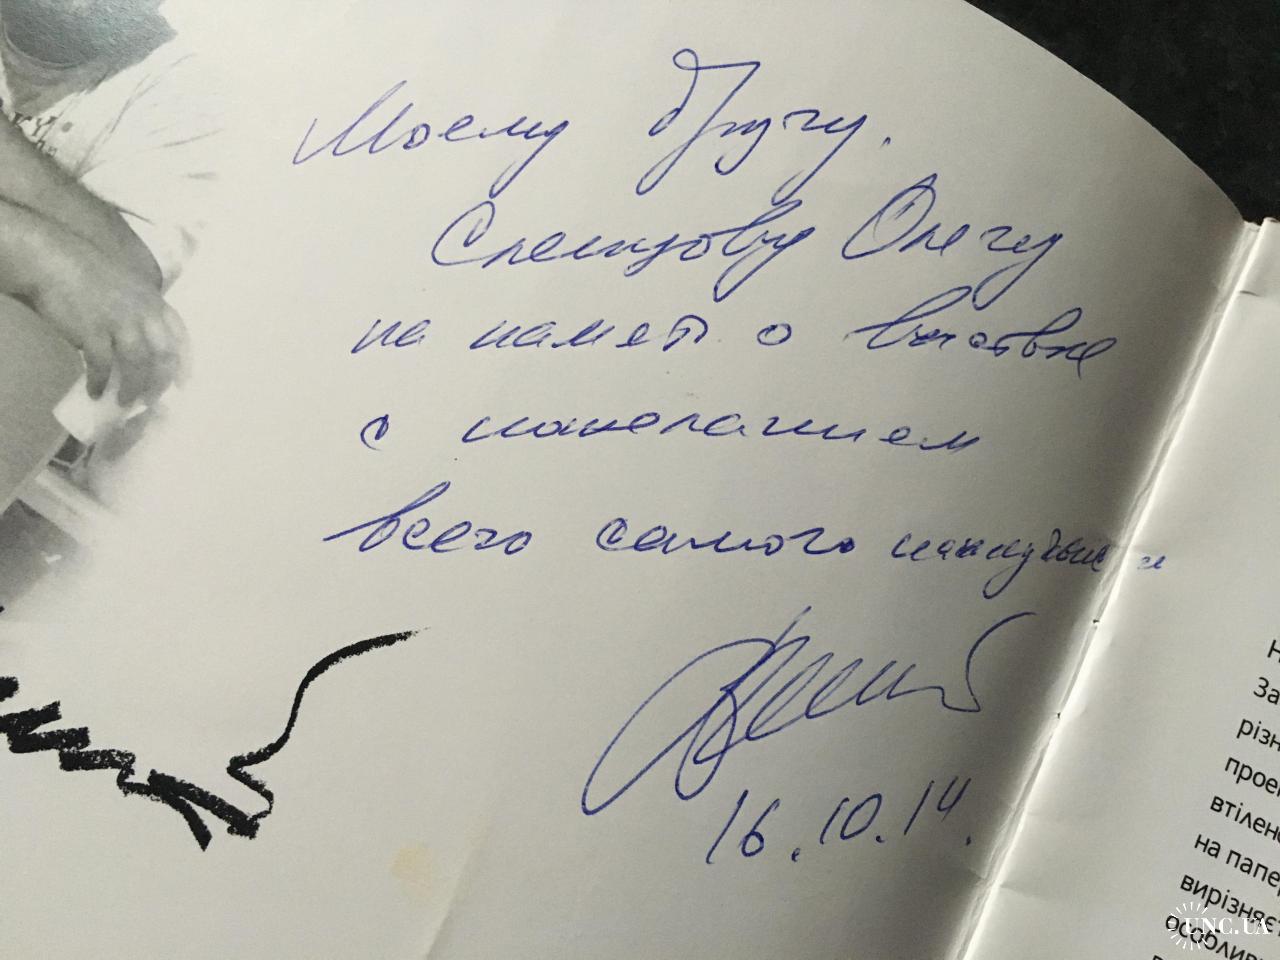 Моему Другу.
Олегу
на память о выставке
с пожеланием
всего самого наилучшего
16.10.14.
За
різн
прое
втілен
на папе
вирізняє
особлив
UNC.UA